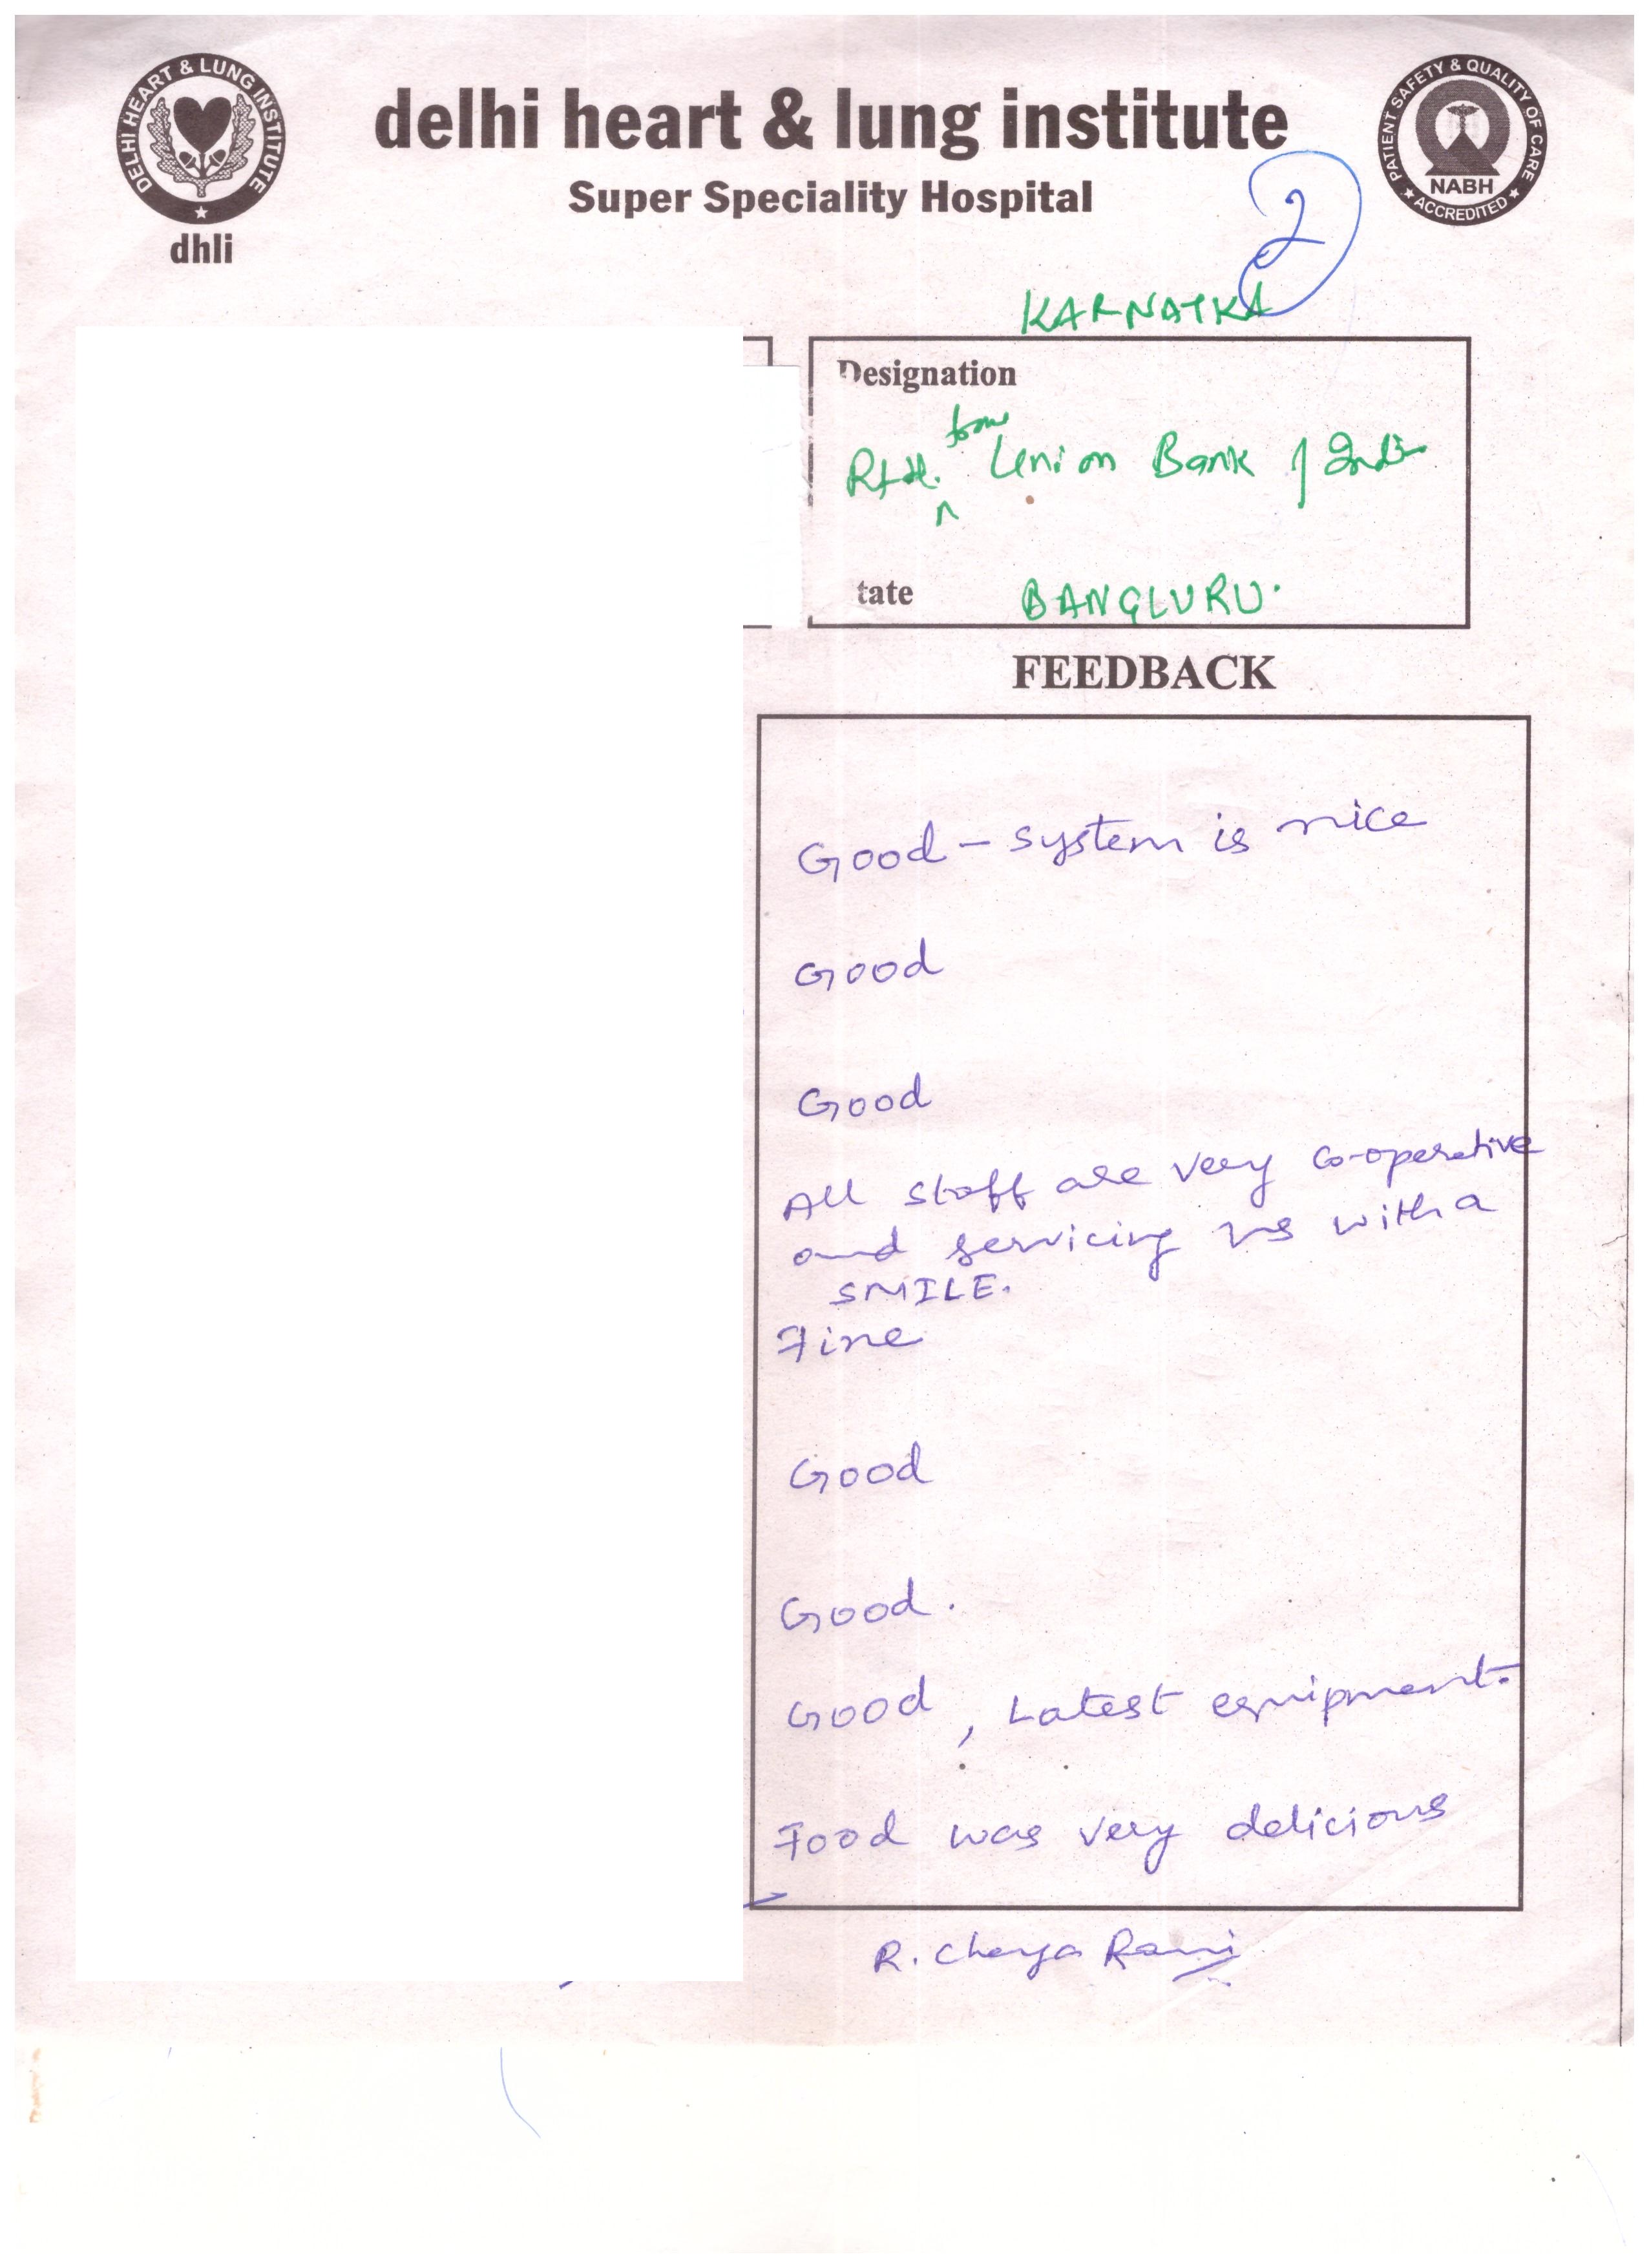 DELHI HEART & LUNG INSTITUTE
dhli
delhi heart & lung institute
Super Speciality Hospital
PATIENT SAFETY & QUALITY OF CARE
NABH
ACCREDITED
2
KARNATKA
Designation
from
Rtd. Union Bank of India
tate BANGLURU.
FEEDBACK
Good - system is nice
Good
Good
All staff are very co-operative
and servicing us with a
SMILE.
Fine
Good
Good.
Good, Latest equipment.
Food was very delicious
R.